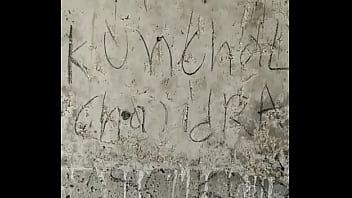 KUNChaL
ChaNdRA